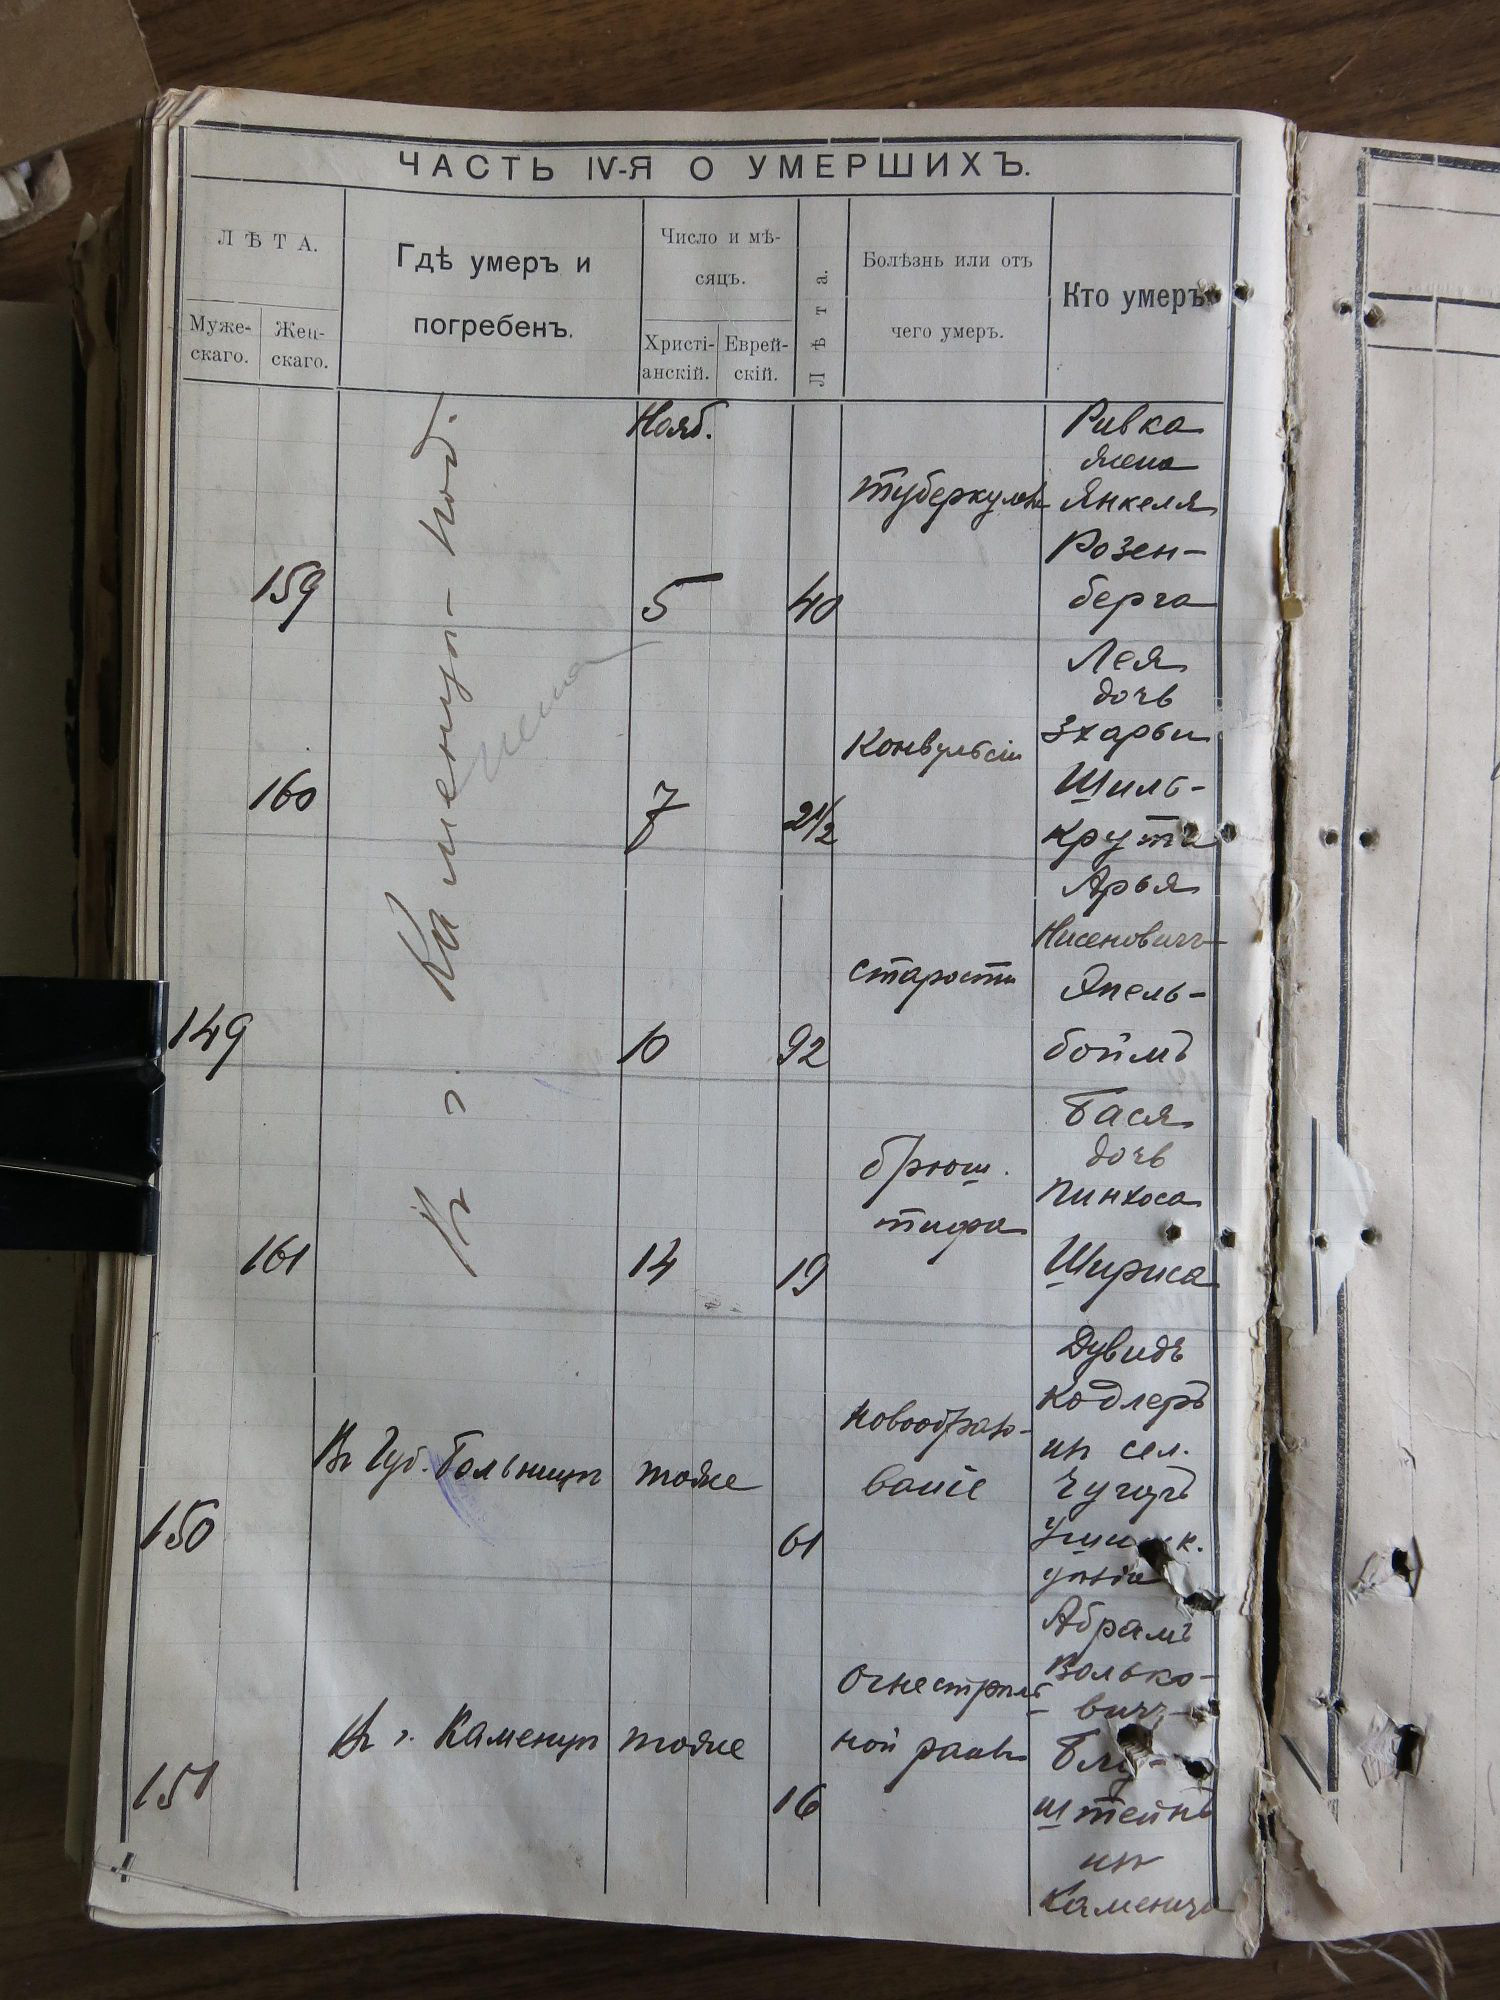 ЧАСТЬ IV-Я О УМЕРШИХЪ.
ЛѢТА.
Муже-
скаго.
Жен-
скаго.
Гдѣ умеръ и
погребенъ.
Число и мѣ-
сяцъ.
Христі-
анскій.
Еврей-
скій.
Лѣта.
Болѣзнь или отъ
чего умеръ.
Кто умеръ
Въ г. Каменцѣ-Под.
Нояб.
159
5
40
туберкулеза
Ривка
жена
Янкеля
Розен-
берга
160
7
2 1/2
Конвульсіи
Лея
дочь
Зхарьи
Шиль-
крута
149
10
92
старости
Арья
Нисеновичъ
Апель-
боймъ
161
14
19
брюш.
тифа
Бася
дочь
Пинхоса
Шириса
150
Въ Губ. Больницѣ
тоже
61
новообразо-
ваніе
Дувидъ
Кодлеръ
из сел.
Ушицк.
уѣзда
151
Въ г. Каменцѣ
тоже
16
Огнестрѣль-
ной раны
Абрамъ
Волько-
вичъ
Блу-
штейнъ
изъ
Каменца